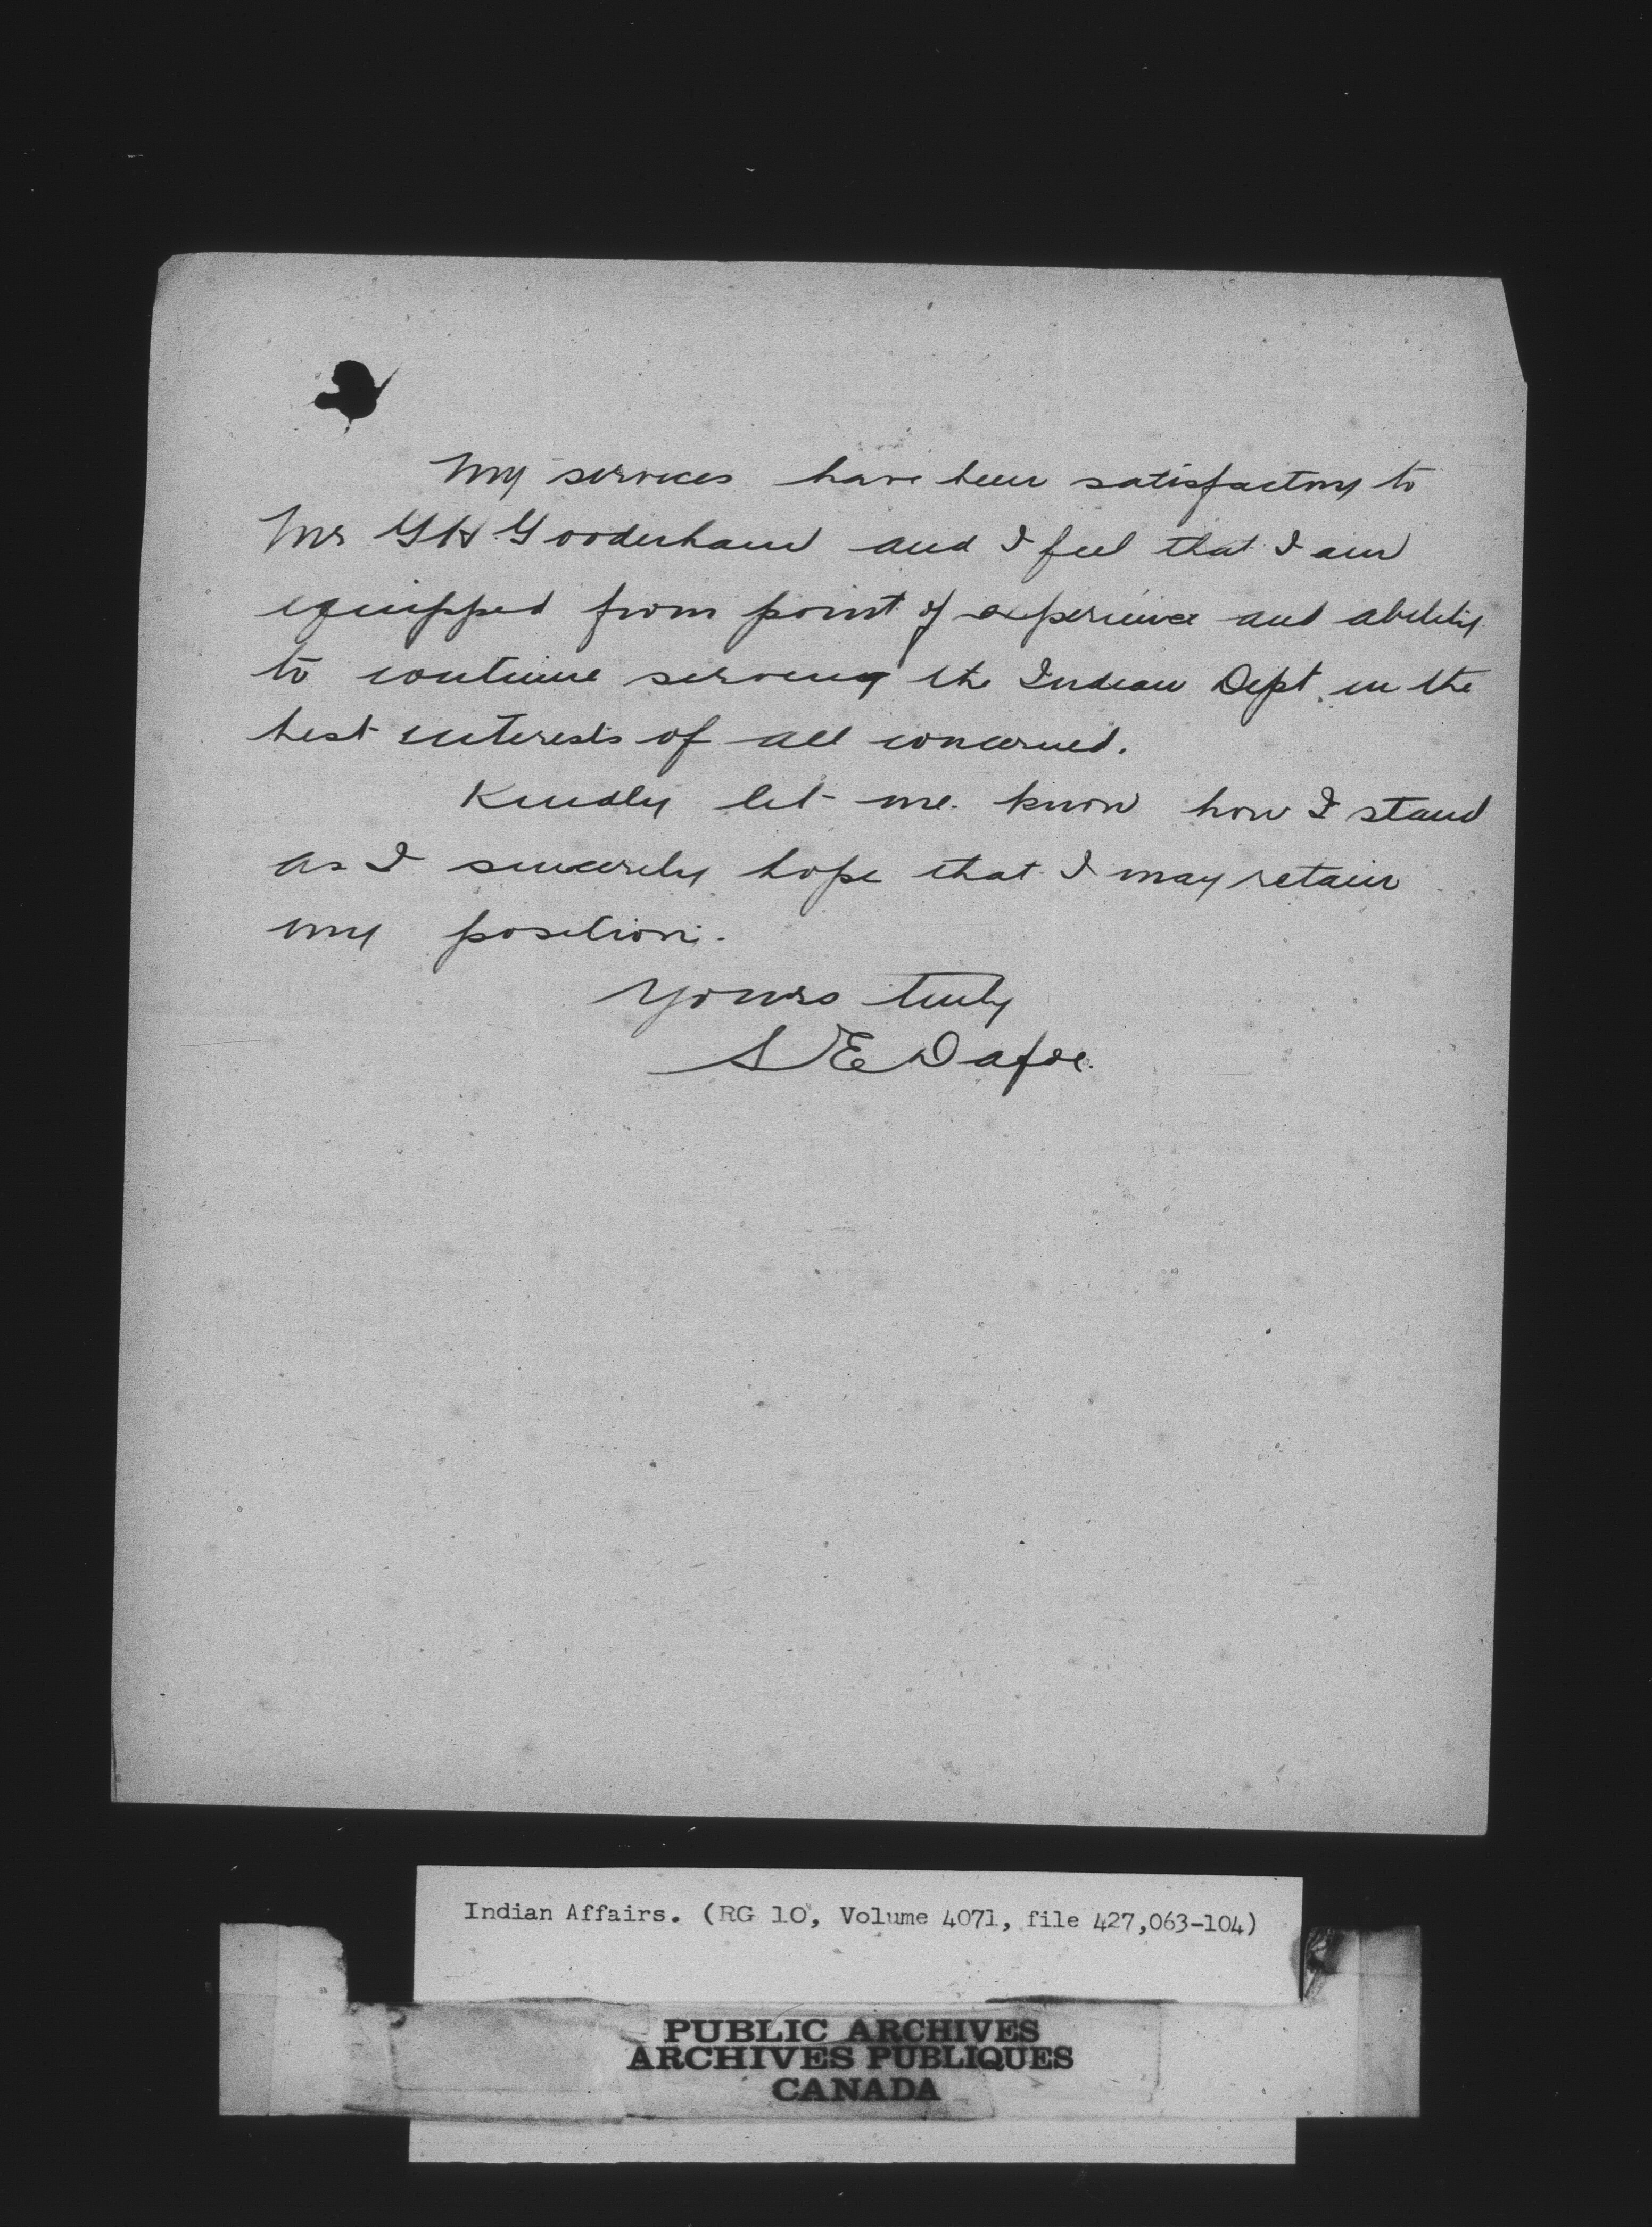 My services have been satisfactory to
Mr G H Gooderham and I feel that I am
equipped from point of experience and ability
to continue serving the Indian Dept. in the
best interests of all concerned.
Kindly let me know how I stand
as I sincerely hope that I may retain
my position.
Yours truly
S E Dafoe.
Indian Affairs. (RG 10, Volume 4071, file 427,063-104)
PUBLIC ARCHIVES
ARCHIVES PUBLIQUES
CANADA